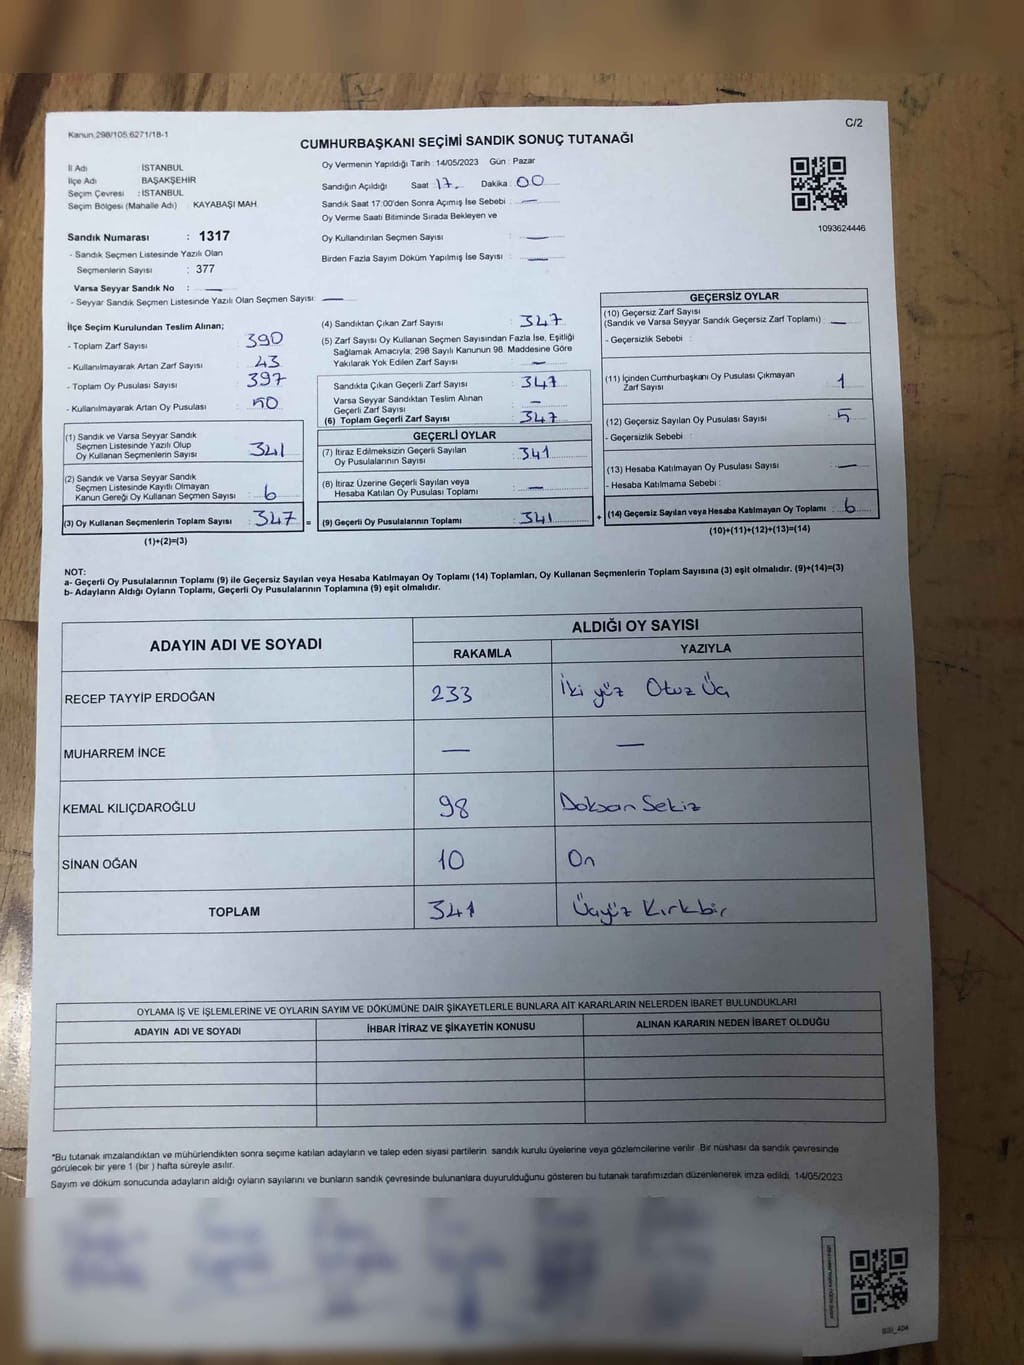 Kanun.298/105.6271/18-1
C/2
CUMHURBAŞKANI SEÇİMİ SANDIK SONUÇ TUTANAĞI
İl Adı İSTANBUL
İlçe Adı BAŞAKŞEHİR
Seçim Çevresi : İSTANBUL
Seçim Bölgesi (Mahalle Adı) KAYABAŞI MAH.
Sandık Numarası : 1317
- Sandık Seçmen Listesinde Yazılı Olan
Seçmenlerin Sayısı : 377
Varsa Seyyar Sandık No : —
- Seyyar Sandık Seçmen Listesinde Yazılı Olan Seçmen Sayısı: —
Oy Vermenin Yapıldığı Tarih : 14/05/2023 Gün : Pazar
Sandığın Açıldığı Saat 17. Dakika : 00
Sandık Saat 17:00'den Sonra Açımış İse Sebebi : —
Oy Verme Saati Bitiminde Sırada Bekleyen ve
Oy Kullandırılan Seçmen Sayısı : —
Birden Fazla Sayım Döküm Yapılmış İse Sayısı : —
1093624446
İlçe Seçim Kurulundan Teslim Alınan;
- Toplam Zarf Sayısı 390
- Kullanılmayarak Artan Zarf Sayısı 43
- Toplam Oy Pusulası Sayısı 397
- Kullanılmayarak Artan Oy Pusulası 50
(1) Sandık ve Varsa Seyyar Sandık
Seçmen Listesinde Yazılı Olup
Oy Kullanan Seçmenlerin Sayısı 341
(2) Sandık ve Varsa Seyyar Sandık
Seçmen Listesinde Kayıtlı Olmayan
Kanun Gereği Oy Kullanan Seçmen Sayısı : 6
(3) Oy Kullanan Seçmenlerin Toplam Sayısı : 347 =
(1)+(2)=(3)
(4) Sandıktan Çıkan Zarf Sayısı : 347
(5) Zarf Sayısı Oy Kullanan Seçmen Sayısından Fazla İse, Eşitliği
Sağlamak Amacıyla, 298 Sayılı Kanunun 98. Maddesine Göre
Yakılarak Yok Edilen Zarf Sayısı : —
Sandıkta Çıkan Geçerli Zarf Sayısı : 347
Varsa Seyyar Sandıktan Teslim Alınan
Geçerli Zarf Sayısı : —
(6) Toplam Geçerli Zarf Sayısı : 347
GEÇERLİ OYLAR
(7) İtiraz Edilmeksizin Geçerli Sayılan
Oy Pusulalarının Sayısı : 341
(8) İtiraz Üzerine Geçerli Sayılan veya
Hesaba Katılan Oy Pusulası Toplamı : —
(9) Geçerli Oy Pusulalarının Toplamı : 341 +
GEÇERSİZ OYLAR
(10) Geçersiz Zarf Sayısı
(Sandık ve Varsa Seyyar Sandık Geçersiz Zarf Toplamı) : —
- Geçersizlik Sebebi :
(11) İçinden Cumhurbaşkanı Oy Pusulası Çıkmayan
Zarf Sayısı : 1
(12) Geçersiz Sayılan Oy Pusulası Sayısı : 5
- Geçersizlik Sebebi :
(13) Hesaba Katılmayan Oy Pusulası Sayısı : —
- Hesaba Katılmama Sebebi :
(14) Geçersiz Sayılan veya Hesaba Katılmayan Oy Toplamı : 6
(10)+(11)+(12)+(13)=(14)
NOT:
a- Geçerli Oy Pusulalarının Toplamı (9) ile Geçersiz Sayılan veya Hesaba Katılmayan Oy Toplamı (14) Toplamları, Oy Kullanan Seçmenlerin Toplam Sayısına (3) eşit olmalıdır. (9)+(14)=(3)
b- Adayların Aldığı Oyların Toplamı, Geçerli Oy Pusulalarının Toplamına (9) eşit olmalıdır.
ADAYIN ADI VE SOYADI ALDIĞI OY SAYISI
RAKAMLA YAZIYLA
RECEP TAYYİP ERDOĞAN 233 İki yüz Otuz Üç
MUHARREM İNCE — —
KEMAL KILIÇDAROĞLU 98 Doksan Sekiz
SİNAN OĞAN 10 On
TOPLAM 341 Üçyüz Kırkbir
OYLAMA İŞ VE İŞLEMLERİNE VE OYLARIN SAYIM VE DÖKÜMÜNE DAİR ŞİKAYETLERLE BUNLARA AİT KARARLARIN NELERDEN İBARET BULUNDUKLARI
ADAYIN ADI VE SOYADI İHBAR İTİRAZ VE ŞİKAYETİN KONUSU ALINAN KARARIN NEDEN İBARET OLDUĞU
*Bu tutanak imzalandıktan ve mühürlendikten sonra seçime katılan adayların ve talep eden siyasi partilerin sandık kurulu üyelerine veya gözlemcilerine verilir. Bir nüshası da sandık çevresinde
görülecek bir yere 1 (bir ) hafta süreyle asılır.
Sayım ve döküm sonucunda adayların aldığı oyların sayılarını ve bunların sandık çevresinde bulunanlara duyurulduğunu gösteren bu tutanak tarafımızdan düzenlenerek imza edildi. 14/05/2023